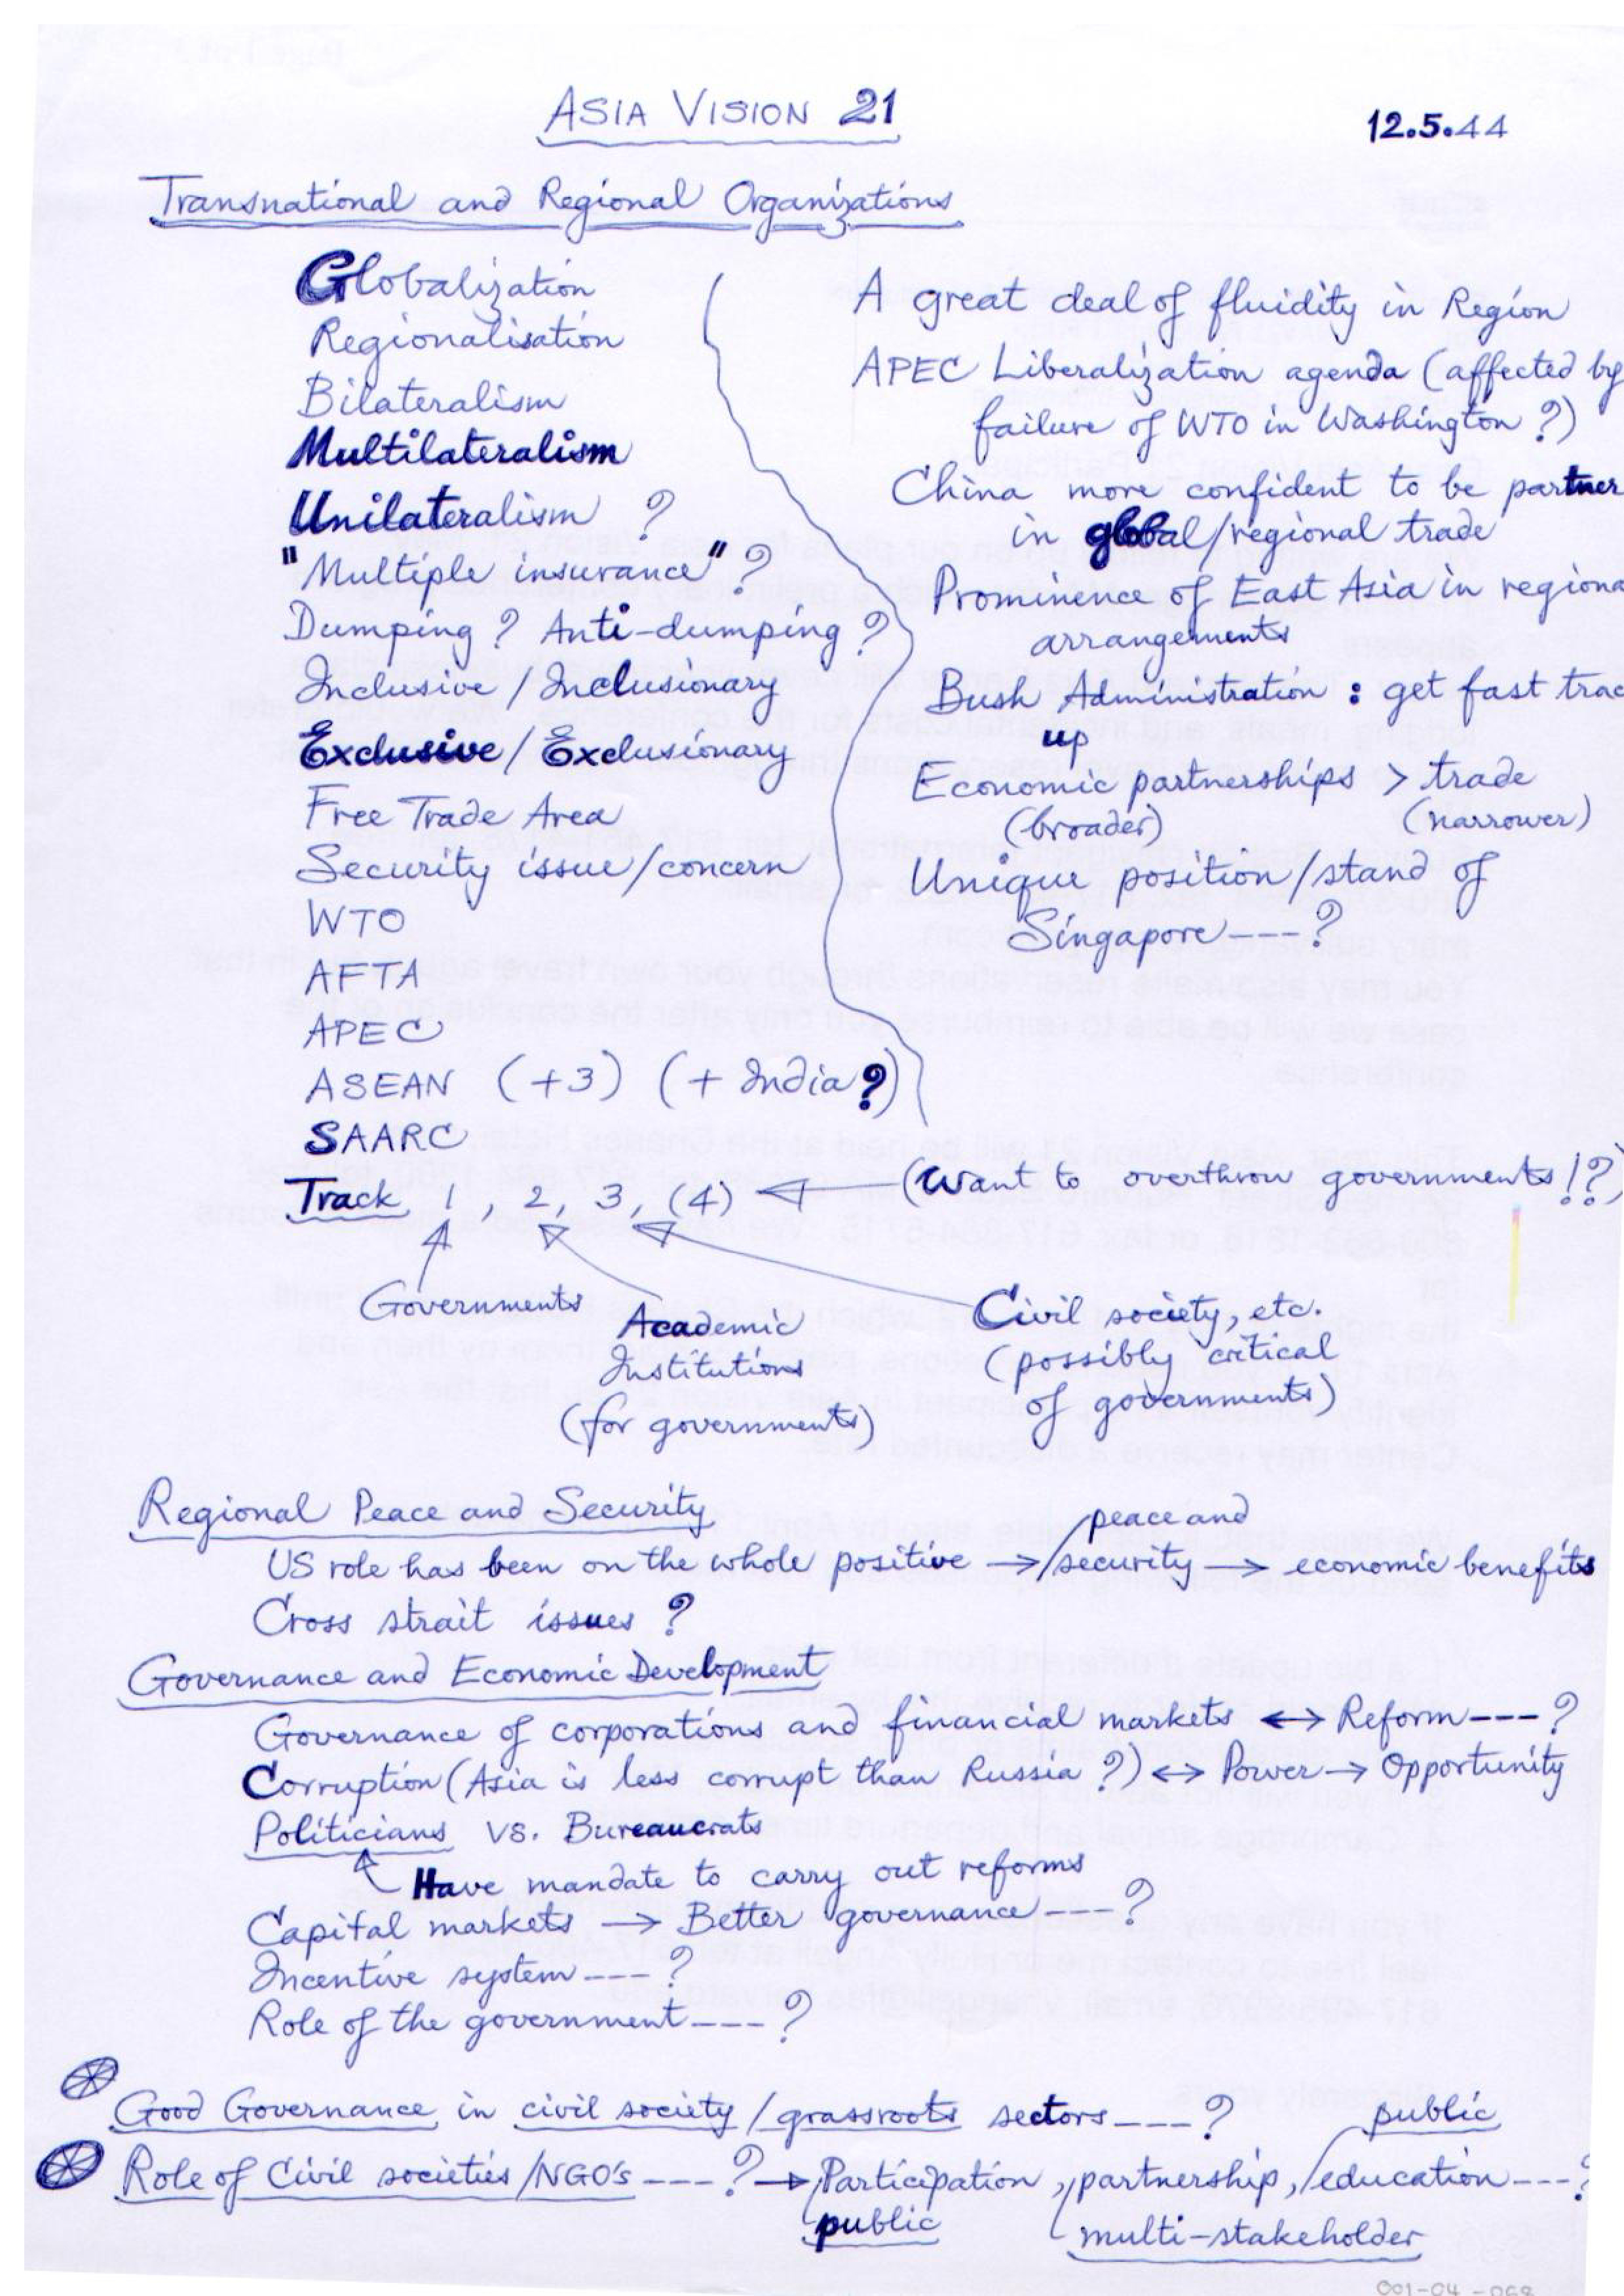 ASIA VISION 21
12.5.44
Transnational and Regional Organizations
Globalization
Regionalisation
Bilateralism
Multilateralism
Unilateralism ?
"Multiple insurance" ?
Dumping ? Anti-dumping ?
Inclusive / Inclusionary
Exclusive / Exclusionary
Free Trade Area
Security issue/concern
WTO
AFTA
APEC
ASEAN (+3) (+ India?)
SAARC
A great deal of fluidity in Region
APEC Liberalization agenda (affected by
failure of WTO in Washington ?)
China more confident to be partner
in global/regional trade
Prominence of East Asia in regiona
arrangements
Bush Administration : get fast trac
up
Economic partnerships > trade
(broader) (narrower)
Unique position/stand of
Singapore --- ?
Track 1, 2, 3, (4) ← (Want to overthrow governments!?)
Governments
Academic
Institutions
(for governments)
Civil society, etc.
(possibly critical
of governments)
Regional Peace and Security
peace and
US role has been on the whole positive → /security → economic benefits
Cross strait issues ?
Governance and Economic Development
Governance of corporations and financial markets ↔ Reform --- ?
Corruption (Asia is less corrupt than Russia ?) ↔ Power → Opportunity
Politicians vs. Bureaucrats
Have mandate to carry out reforms
Capital markets → Better governance --- ?
Incentive system --- ?
Role of the government --- ?
Good Governance in civil society / grassroots sectors --- ?
public
Role of Civil societies /NGO's --- ? → Participation, partnership, /education --- ?
public
multi-stakeholder
001-04-068